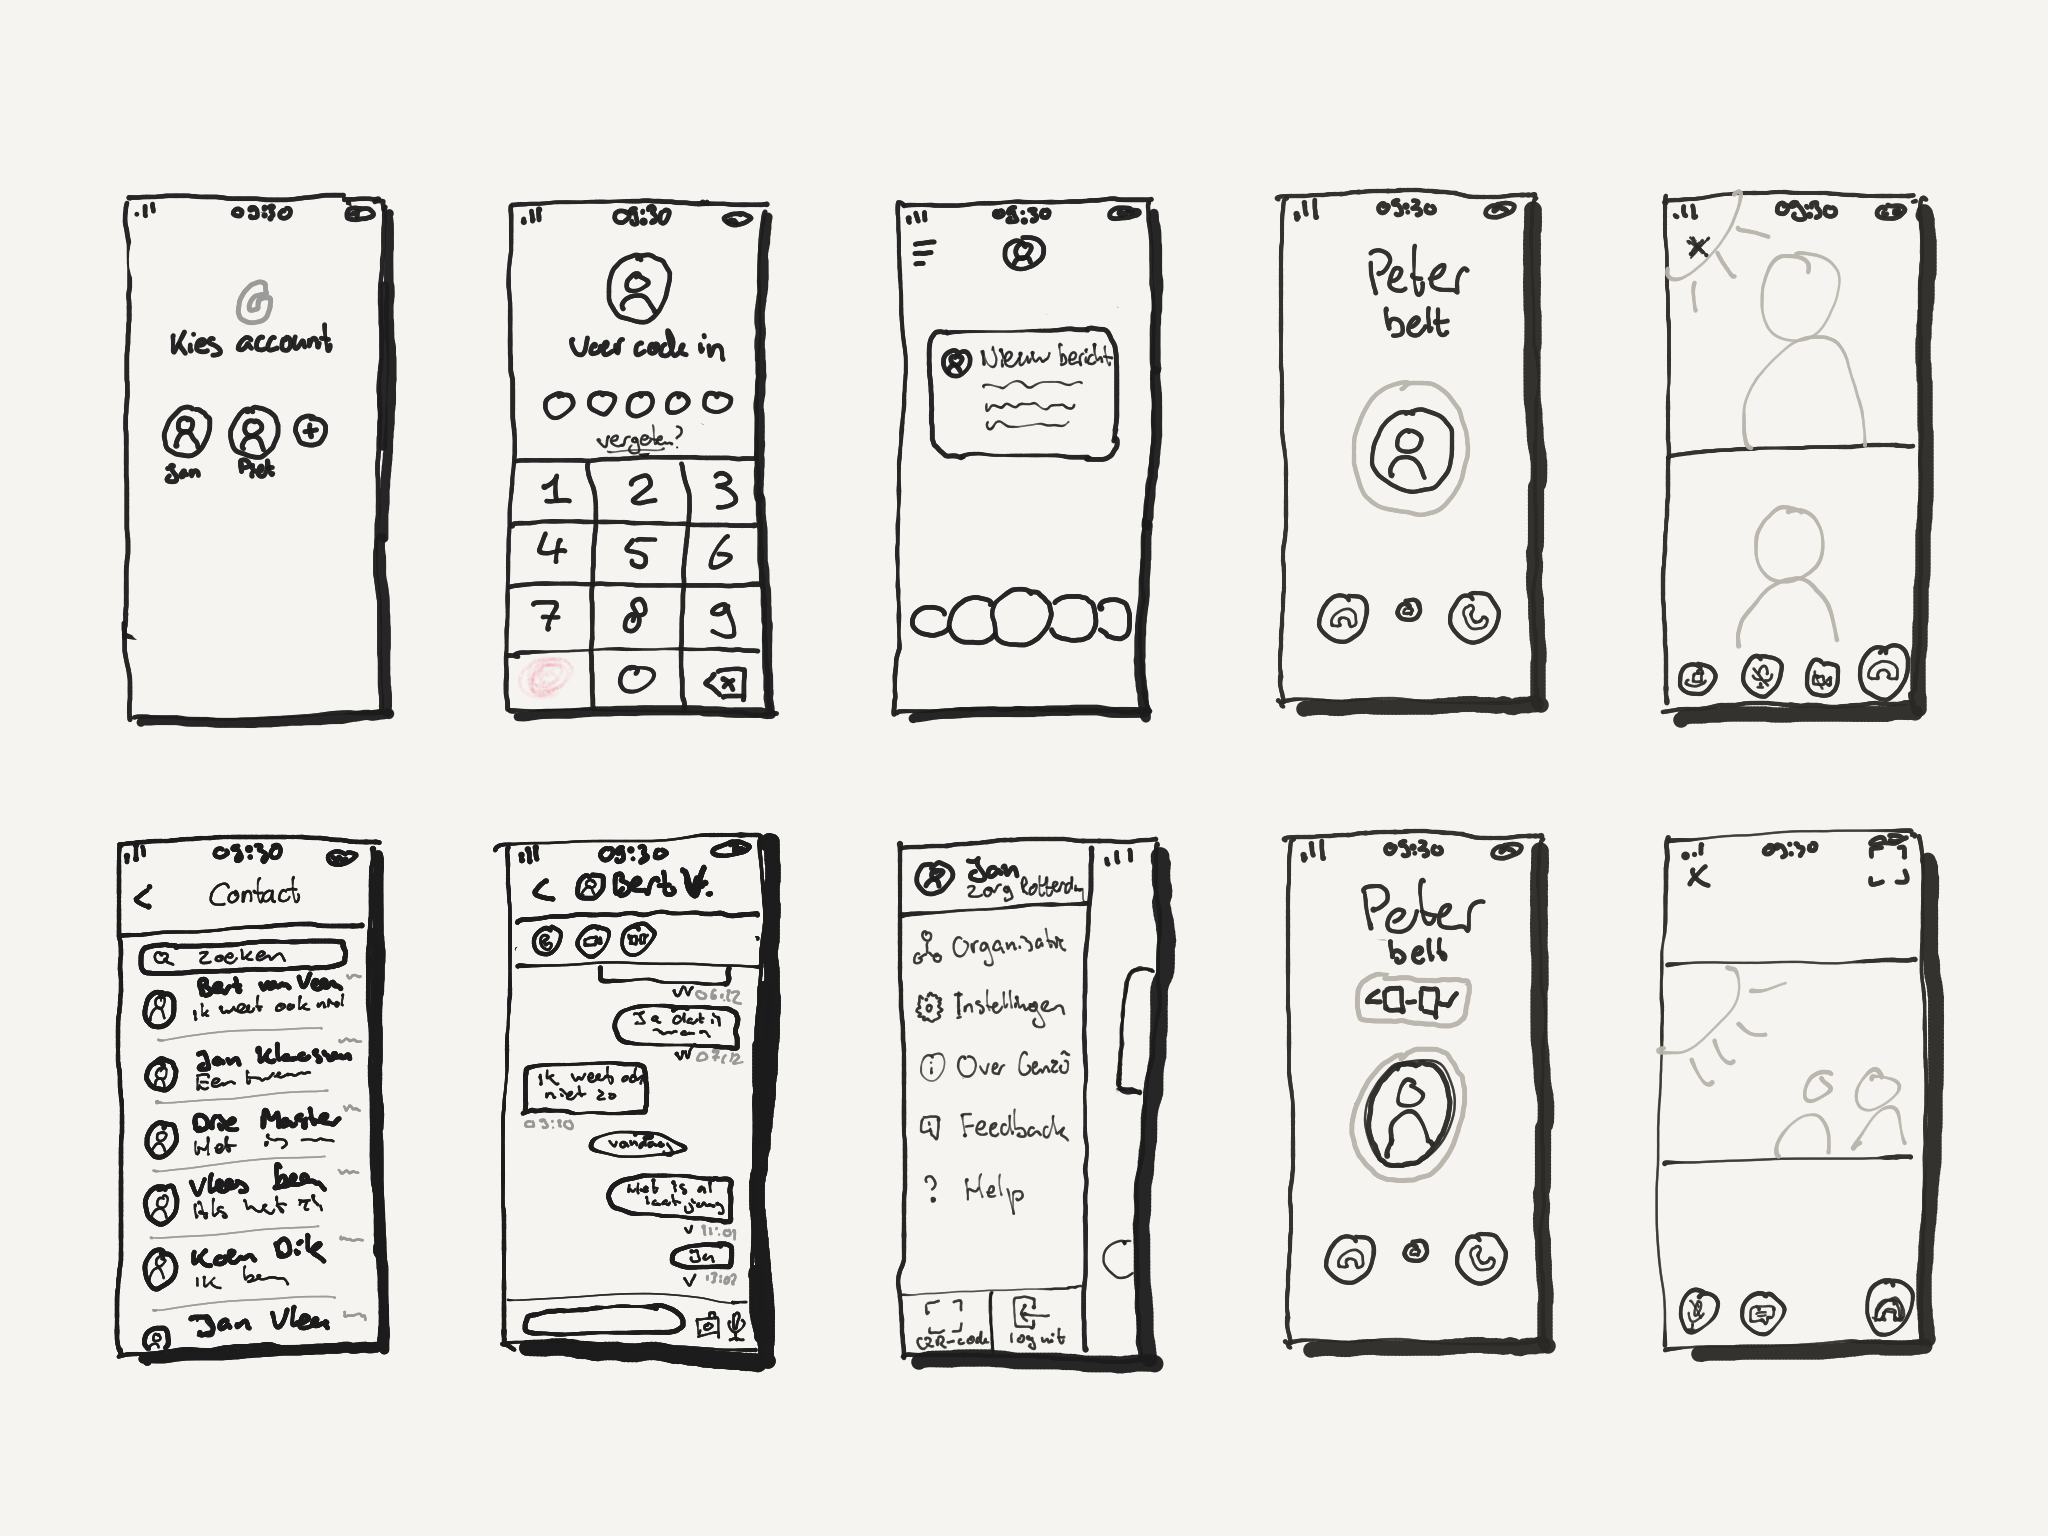 09:30
Kies account
Jan
Piet
09:30
Voer code in
vergeten?
1 2 3
4 5 6
7 8 9
0
09:30
Nieuw bericht
09:30
Peter
belt
09:30
09:30
Contact
zoeken
Bert van Veen
ik weet ook niet
Jan Klaassen
Een
Drie Master
Het is
Vlees been
Als het
Koen Dik
ik ben
Jan Vlees
09:30
Bert V.
06:12
Ja dat is
07:12
ik weet ook
niet zo
09:10
vandaag
Het is al
laat
11:01
Ja
Jan
Zorg Rotterdam
Organisatie
Instellingen
Over Genzô
Feedback
Help
QR-code
log uit
09:30
Peter
belt
09:30